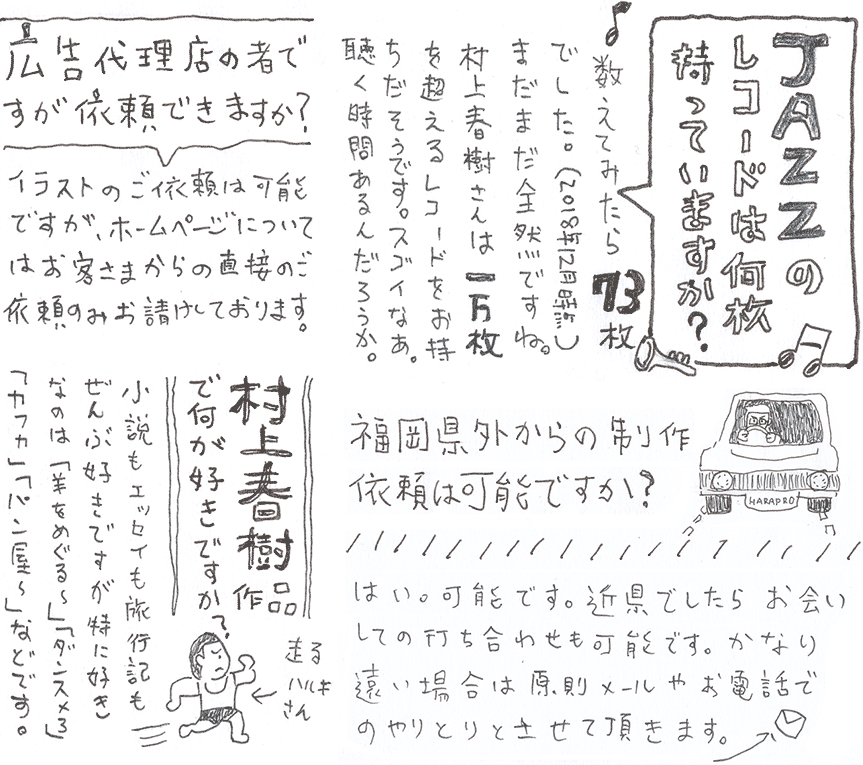 JAZZの
レコードは何枚
持っていますか？
数えてみたら73枚
でした。(2018年12月時点)
まだまだ全然ですね。
村上春樹さんは一万枚
を超えるレコードをお持
ちだそうです。スゴイなあ。
聴く時間あるんだろうか。
広告代理店の者で
すが依頼できますか？
イラストのご依頼は可能
ですが、ホームページについて
はお客さまからの直接のご
依頼のみお請けしております。
村上春樹作品
で何が好きですか？
小説もエッセイも旅行記も
ぜんぶ好きですが特に好き
なのは「羊をめぐる〜」「ダンス×3」
「カフカ」「パン屋〜」などです。
走る
ハルキ
さん
福岡県外からの制作
依頼は可能ですか？
HARAPRO
はい。可能です。近県でしたらお会い
しての打ち合わせも可能です。かなり
遠い場合は原則メールやお電話で
のやりとりとさせて頂きます。